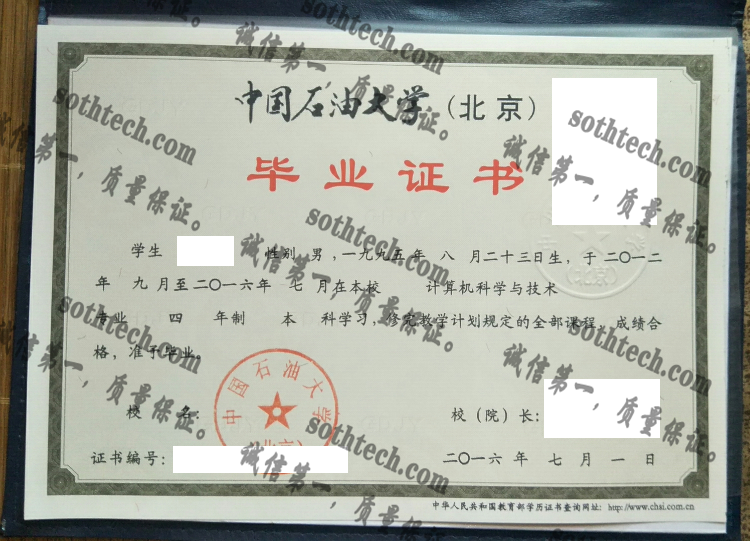 中国石油大学（北京）
毕业证书
学生 性别 男，一九九五年 八 月二十三日生，于二〇一二
年 九 月至二〇一六年 七 月在本校 计算机科学与技术
专业 四 年制 本 科学习，修完教学计划规定的全部课程，成绩合
格，准予毕业。
中国石油大学
（北京）
校 名：
校（院）长：
证书编号：
二〇一六年 七 月 一 日
中华人民共和国教育部学历证书查询网址：http://www.chsi.com.cn
（北京）
sothtech.com
诚信第一，质量保证。
sothtech.com
诚信第一，质量保证。
sothtech.com
诚信第一，质量保证。
sothtech.com
诚信第一，质量保证。
sothtech.com
诚信第一，质量保证。
sothtech.com
诚信第一，质量保证。
sothtech.com
诚信第一，质量保证。
sothtech.com